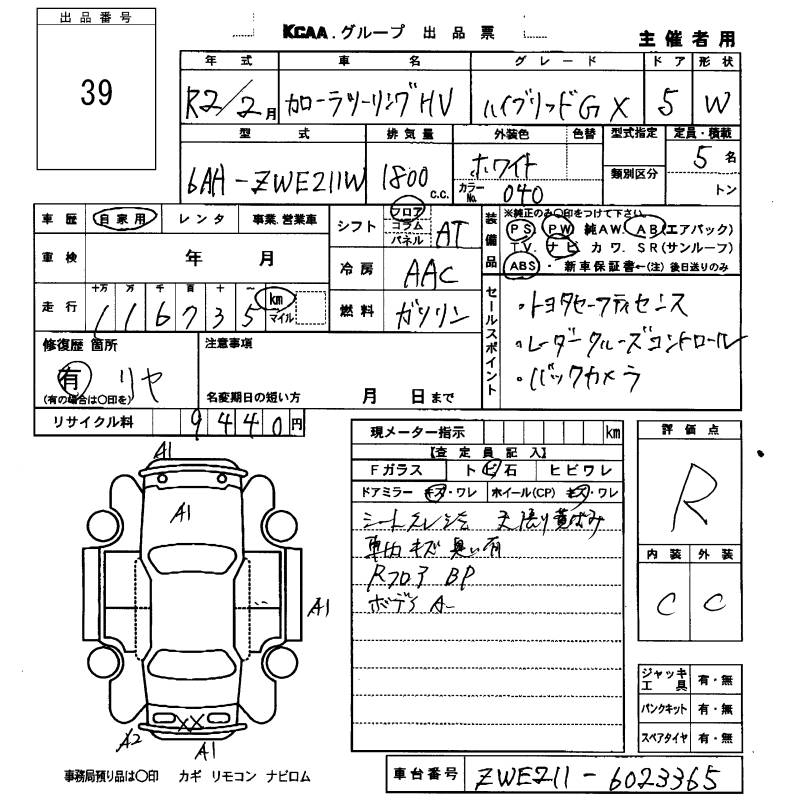 出品番号
39
KCAA.グループ 出品票
主催者用
年式 車名 グレード ドア 形状
R2/2月 カローラツーリングHV ハイブリッドGX 5 W
型式 排気量 外装色 色替 型式指定 定員・積載
6AA-ZWE211W 1800c.c. ホワイト カラーNo. 040 類別区分 5名
トン
車歴 自家用 レンタ 事業.営業車
車検 年 月
走行 十万 万 千 百 十 一 km マイル
116735
シフト フロア コラム パネル AT
冷房 AAC
燃料 ガソリン
装備品
※純正のみ○印をつけて下さい。
PS PW 純AW. AB(エアバック)
T.V. ナビ カワ. SR(サンルーフ)
ABS・新車保証書←(注)後日送りのみ
セールスポイント
・トヨタセーフティセンス
・レーダークルーズコントロール
・バックカメラ
修復歴 箇所
有 リヤ
(有の場合は○印を)
注意事項
名変期日の短い方 月 日まで
リサイクル料 9440円
現メーター指示 km
【査定員記入】
Fガラス トビ石 ヒビワレ
ドアミラー キズ・ワレ ホイール(CP) キズ・ワレ
シート 天張り黄ばみ
車内キズ 臭い有
Rフロア BP
ボディA-
評価点
R
内装 外装
C C
ジャッキ工具 有・無
パンクキット 有・無
スペアタイヤ 有・無
A1
A1
A1
XX
A2
A1
事務局預り品は○印 カギ リモコン ナビロム
車台番号 ZWE211-6023365